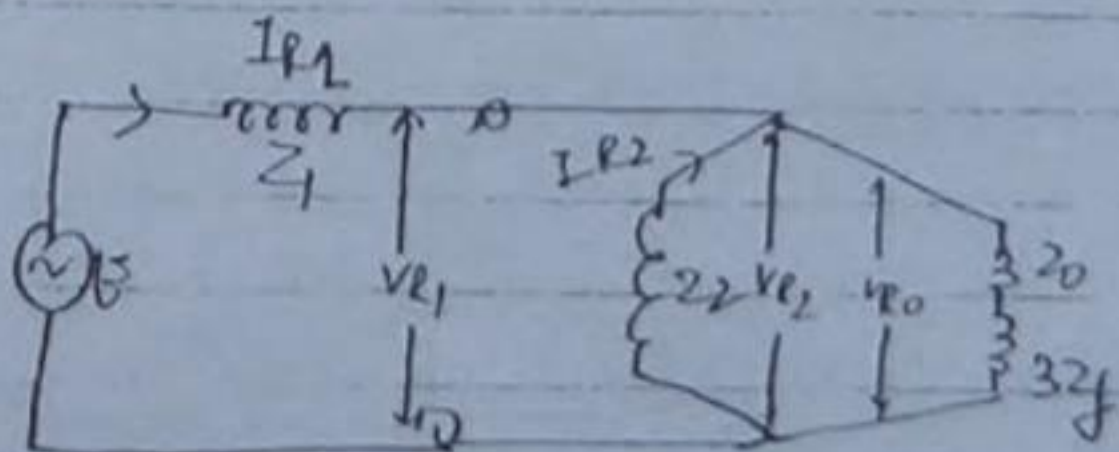 IR1
Z1
E
VR1
IR2
Z2
VR2
VR0
Z0
3Zf